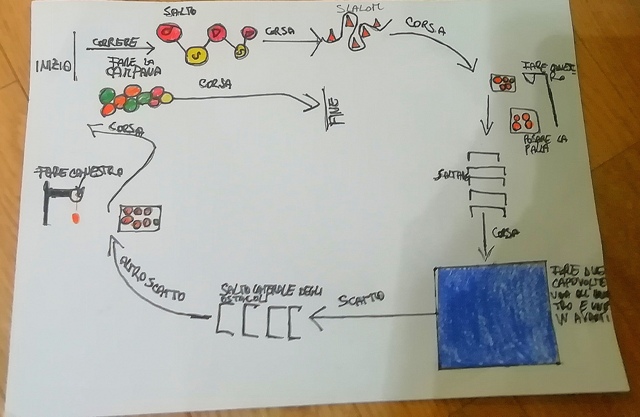 INIZIO
CORRERE
SALTO
D
S
D
S
FARE LA
CAMPANA
CORSA
SLALOM
CORSA
FARE CANEST
RO
POSARE LA
PALLA
SALTARE
CORSA
FARE DUE
CAPOVOLTE
UNA ALL'INDIE
TRO E UNA
IN AVANTI
SCATTO
SALTO LATERALE DEGLI
OSTACOLI
ALTRO SCATTO
FARE CANESTRO
CORSA
CORSA
FINE